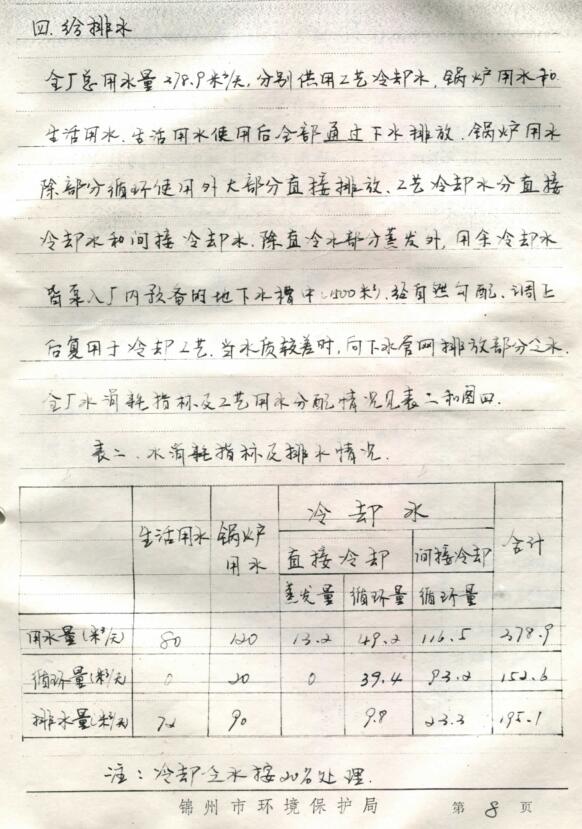 四. 给排水
全厂总用水量378.9米³/天,分别供用工艺冷却水,锅炉用水和
生活用水.生活用水使用后全部通过下水排放.锅炉用水
除部分循环使用外大部分直接排放.工艺冷却水分直接
冷却水和间接冷却水.除直冷水部分蒸发外,用余冷却水
皆泵入厂内预备的地下水槽中(400米³).经自然匀配、调上
后复用于冷却工艺.当水质较差时,向下水管网排放部分冷水.
全厂水消耗指标及工艺用水分配情况见表二和图四.
表二.水消耗指标及排水情况.
生活用水 锅炉用水 冷却水 合计
直接冷却 间接冷却
蒸发量 循环量 循环量
用水量(米³/天) 80 120 13.2 49.2 116.5 378.9
循环量(米³/天) 0 20 0 39.4 93.2 152.6
排水量(米³/天) 72 90 9.8 23.3 195.1
注:冷却水按20%处理.
锦州市环境保护局 第 8 页